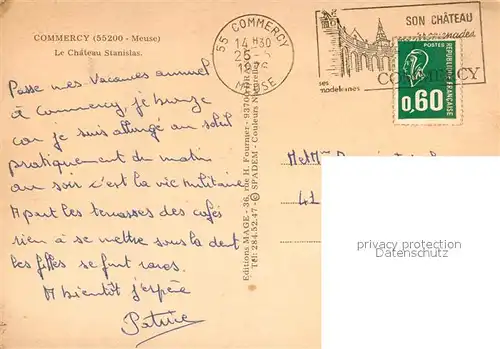 COMMERCY (55200 - Meuse)
Le Château Stanislas.
55 COMMERCY
14 H30
25-
1976
MEUSE
SON CHÂTEAU
ses promenades
ses
madeleines
COMMERCY
POSTES
REPUBLIQUE FRANÇAISE
0,60
Passe mes Vacances annuel
à Commercy, je bronze
car je suis allongé au soleil
pratiquement du matin
au soir c'est la vie militaire
A part les terrasses des cafés
rien à se mettre sous la dent
les filles se font rares.
A bientôt j'espère
Patrice
Editions MAGE - 36, rue H. Fournier - 93700 DRANCY
Tél : 284.52.47 - © SPADEM - Couleurs Naturelles
Met Mme
41
privacy protection
Datenschutz